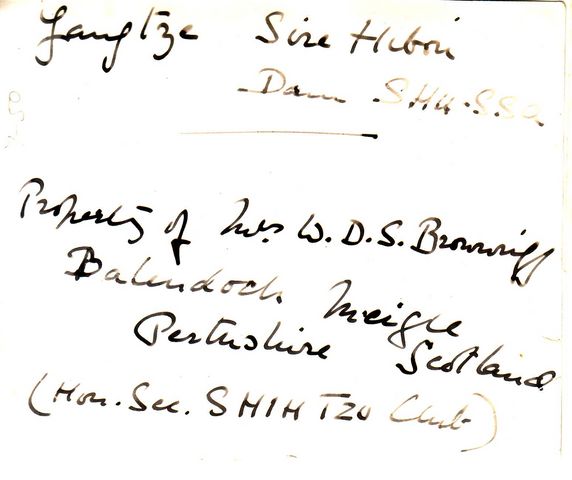 Yangtze Sire Hibou
Dam SHU-SSA
Property of Mrs W.D.S. Brownrigg
Balendoch Meigle
Perthshire Scotland
(Hon. Sec. SHIH TZU Club)